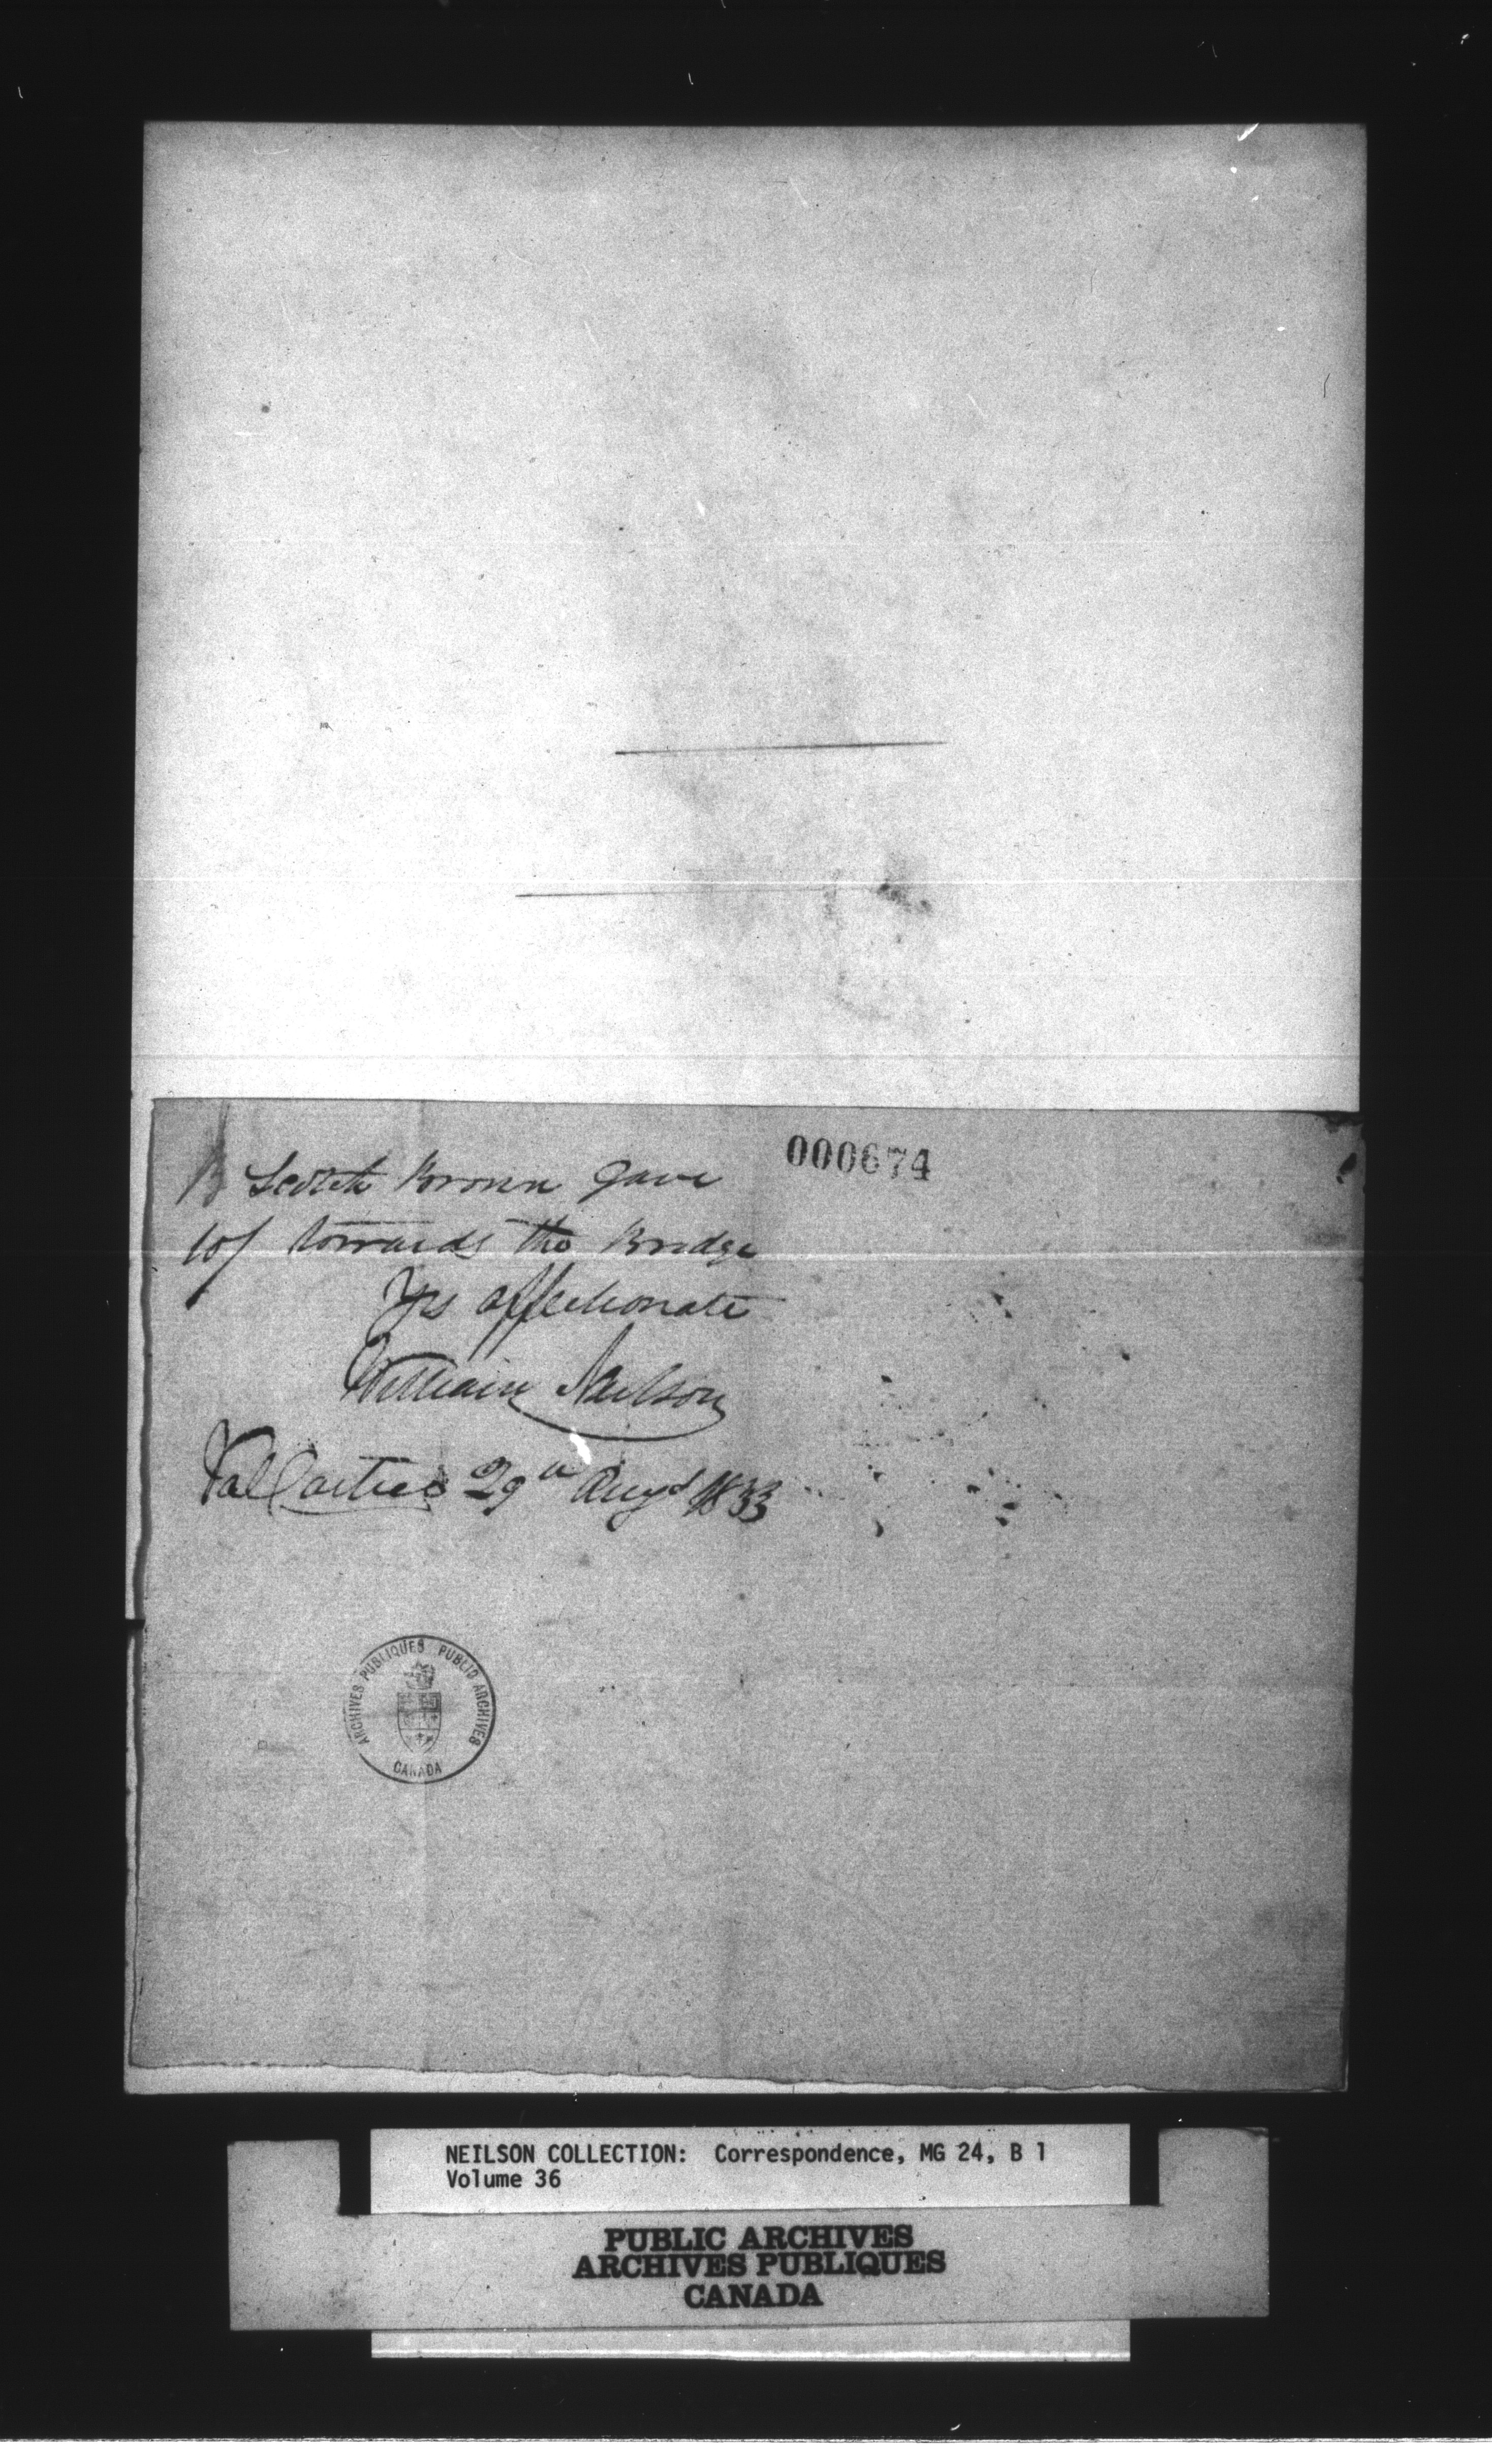 000674
B Scotch Brown gave
10/ towards the Bridge
Yrs affectionate
William Neilson
ValCartier 29th Augt 1833
ARCHIVES PUBLIQUES PUBLIC ARCHIVES
CANADA
NEILSON COLLECTION: Correspondence, MG 24, B 1
Volume 36
PUBLIC ARCHIVES
ARCHIVES PUBLIQUES
CANADA